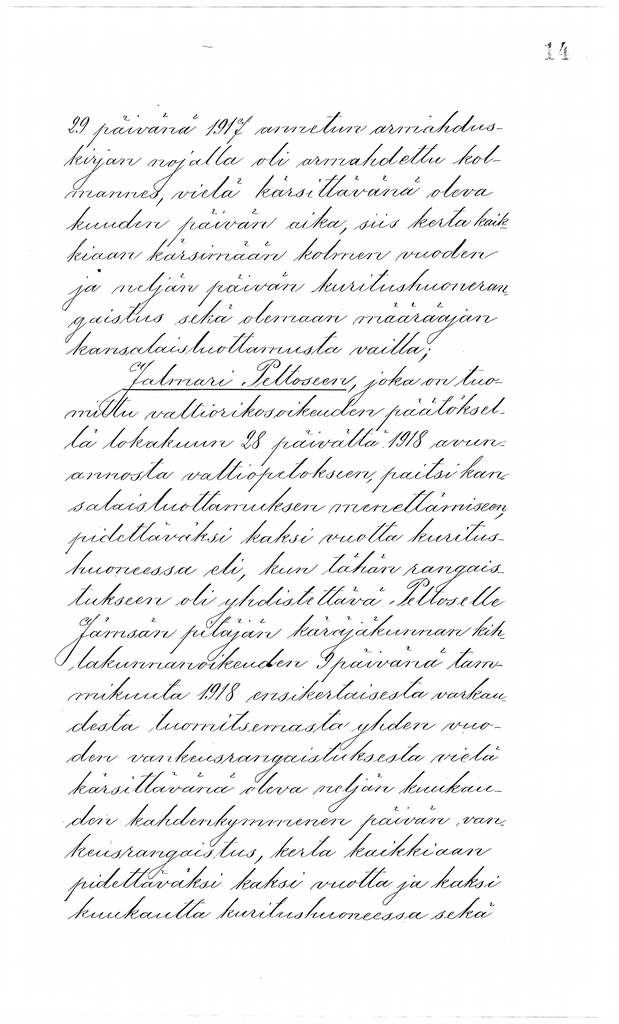 14
29 päivänä 1917 annetun armahdus-
kirjan nojalla oli armahdettu kol-
mannes, vielä kärsittävänä oleva
kuuden päivän aika, siis kerta kaik-
kiaan kärsimään kolmen vuoden
ja neljän päivän kuritushuoneran-
gaistus sekä olemaan määräajan
kansalaisluottamusta vailla;
Jalmari Peltoseen, joka on tuo-
mittu valtiorikosoikeuden päätöksel-
lä lokakuun 28 päivältä 1918 avun-
annosta valtiopetokseen, paitsi kan-
salaisluottamuksen menettämiseen,
pidettäväksi kaksi vuotta kuritus-
huoneessa eli, kun tähän rangais-
tukseen oli yhdistettävä Peltoselle
Jämsän pitäjän käräjäkunnan kih-
lakunnanoikeuden 9 päivänä tam-
mikuuta 1918 ensikertaisesta varkau-
desta tuomitsemasta yhden vuo-
den vankeusrangaistuksesta vielä
kärsittävänä oleva neljän kuukau-
den kahdenkymmenen päivän van-
keusrangaistus, kerta kaikkiaan
pidettäväksi kaksi vuotta ja kaksi
kuukautta kuritushuoneessa sekä